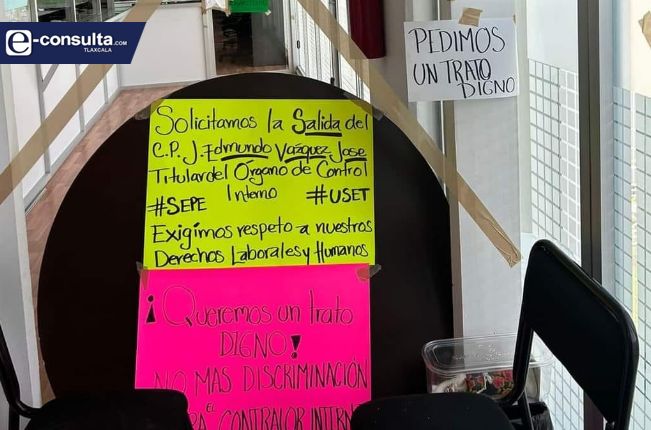 e-consulta.COM
TLAXCALA
PEDIMOS
UN TRATO
DIGNO
Solicitamos la Salida del
C.P. J. Edmundo Vazquez Jose
Titular del Órgano de Control
#SEPE Interno #USET
Exigimos respeto a nuestros
Derechos Laborales y Humanos
¡Queremos un trato
DIGNO!
NO MAS DISCRIMINACIÓN
EL
CONTRALOR INTERN